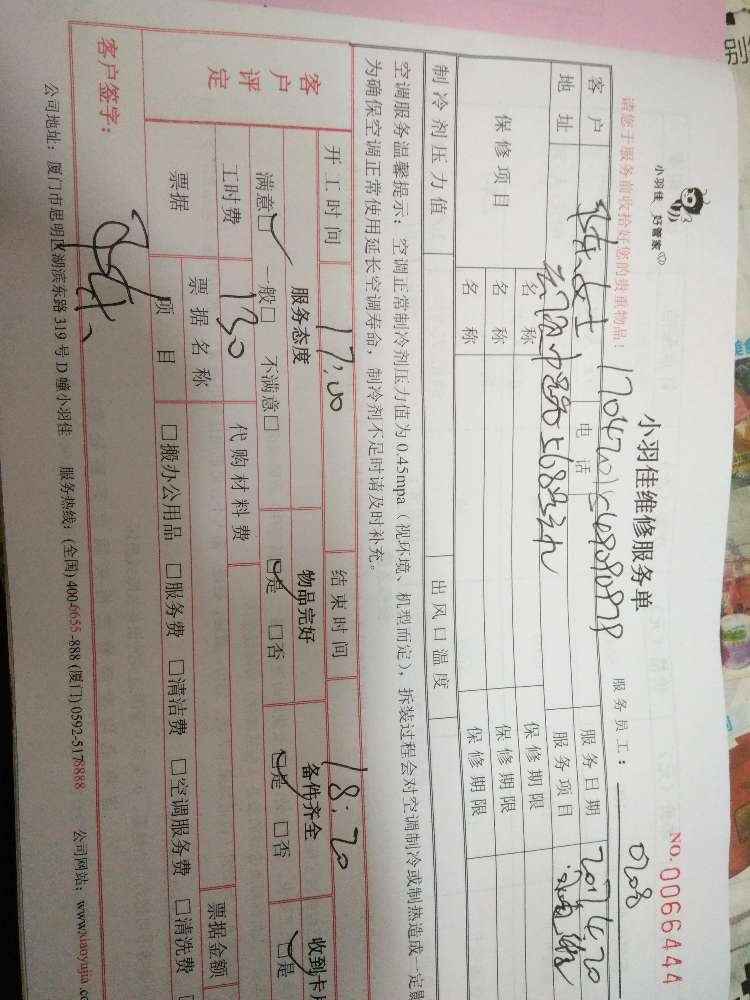 小羽佳 好管家
小羽佳维修服务单
NO.0066444
请您于服务前收拾好您的贵重物品!
服务员工: 0208
客户 女士 电话 服务日期 2017.4.20
地址 服务项目
保修项目 名称 保修期限
名称 保修期限
名称 保修期限
制冷剂压力值 出风口温度
空调服务温馨提示: 空调正常制冷剂压力值为 0.45mpa (视环境、机型而定), 拆装过程会对空调制冷或制热造成一定
为确保空调正常使用延长空调寿命, 制冷剂不足时请及时补充。
开工时间 17:00 结束时间 18:20
客户评定 服务态度 物品完好 备件齐全 收到卡
满意□ 一般□ 不满意□ □是 □否 □是 □否 □是
工时费 130 代购材料费
票据 票据名称 票据金额
项目 □搬办公用品 □服务费 □清洁费 □空调服务费 □清洗费
客户签字:
公司地址: 厦门市思明区湖滨东路 319 号 D 幢小羽佳 服务热线: (全国) 4006655-888 (厦门) 0592-5178888 公司网站: www.xiaoyujia.c